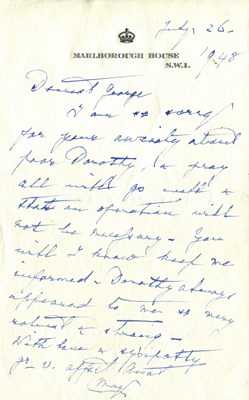 July 26.
1948
MARLBOROUGH HOUSE
S.W.1.
Dearest George
I am so sorry
for your anxiety about
poor Dorothy, & pray
all will go well &
that an operation will
not be necessary - You
will I know keep me
informed - Dorothy always
appeared to me so very
robust & strong -
With love & sympathy
yr. v. affect. Aunt
May